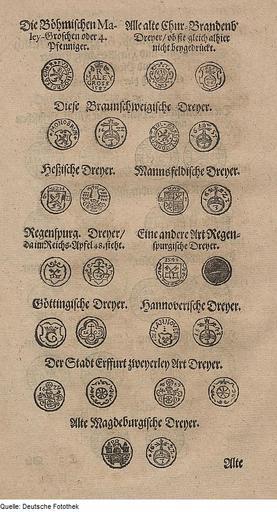 Die Böhmischen Ma-
ley-Groschen oder 4.
Pfenniger.
Alle alte Chur-Brandenb
Dreyer/ ob sie gleich alhier
nicht beygedrückt.
MALEY
GROSS
Diese Braunschweigische Dreyer.
Hessische Dreyer.
Mannsfeldische Dreyer.
Regenspurg. Dreyer/
da im Reichs-Apfel 48. steht.
Eine andere Art Regen-
spurgische Dreyer.
Göttingische Dreyer.
Hannoverische Dreyer.
Der Stadt Erffurt zweyerley Art Dreyer.
Alte Magdeburgische Dreyer.
Alte
Quelle: Deutsche Fotothek